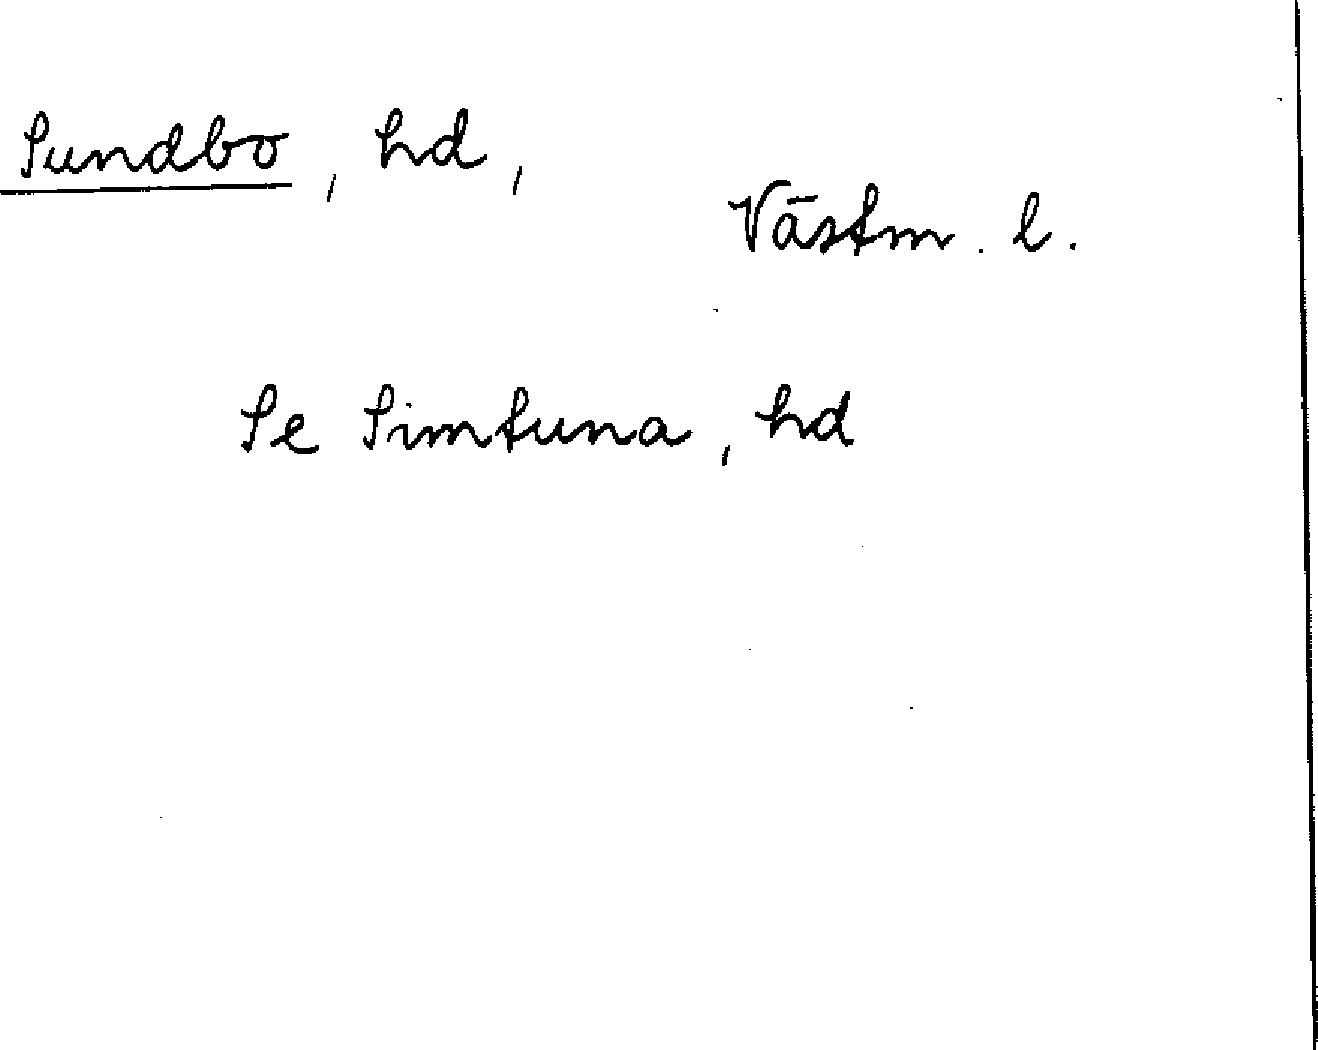 Sundbo, hd,
Västm. l.
Se Simtuna, hd